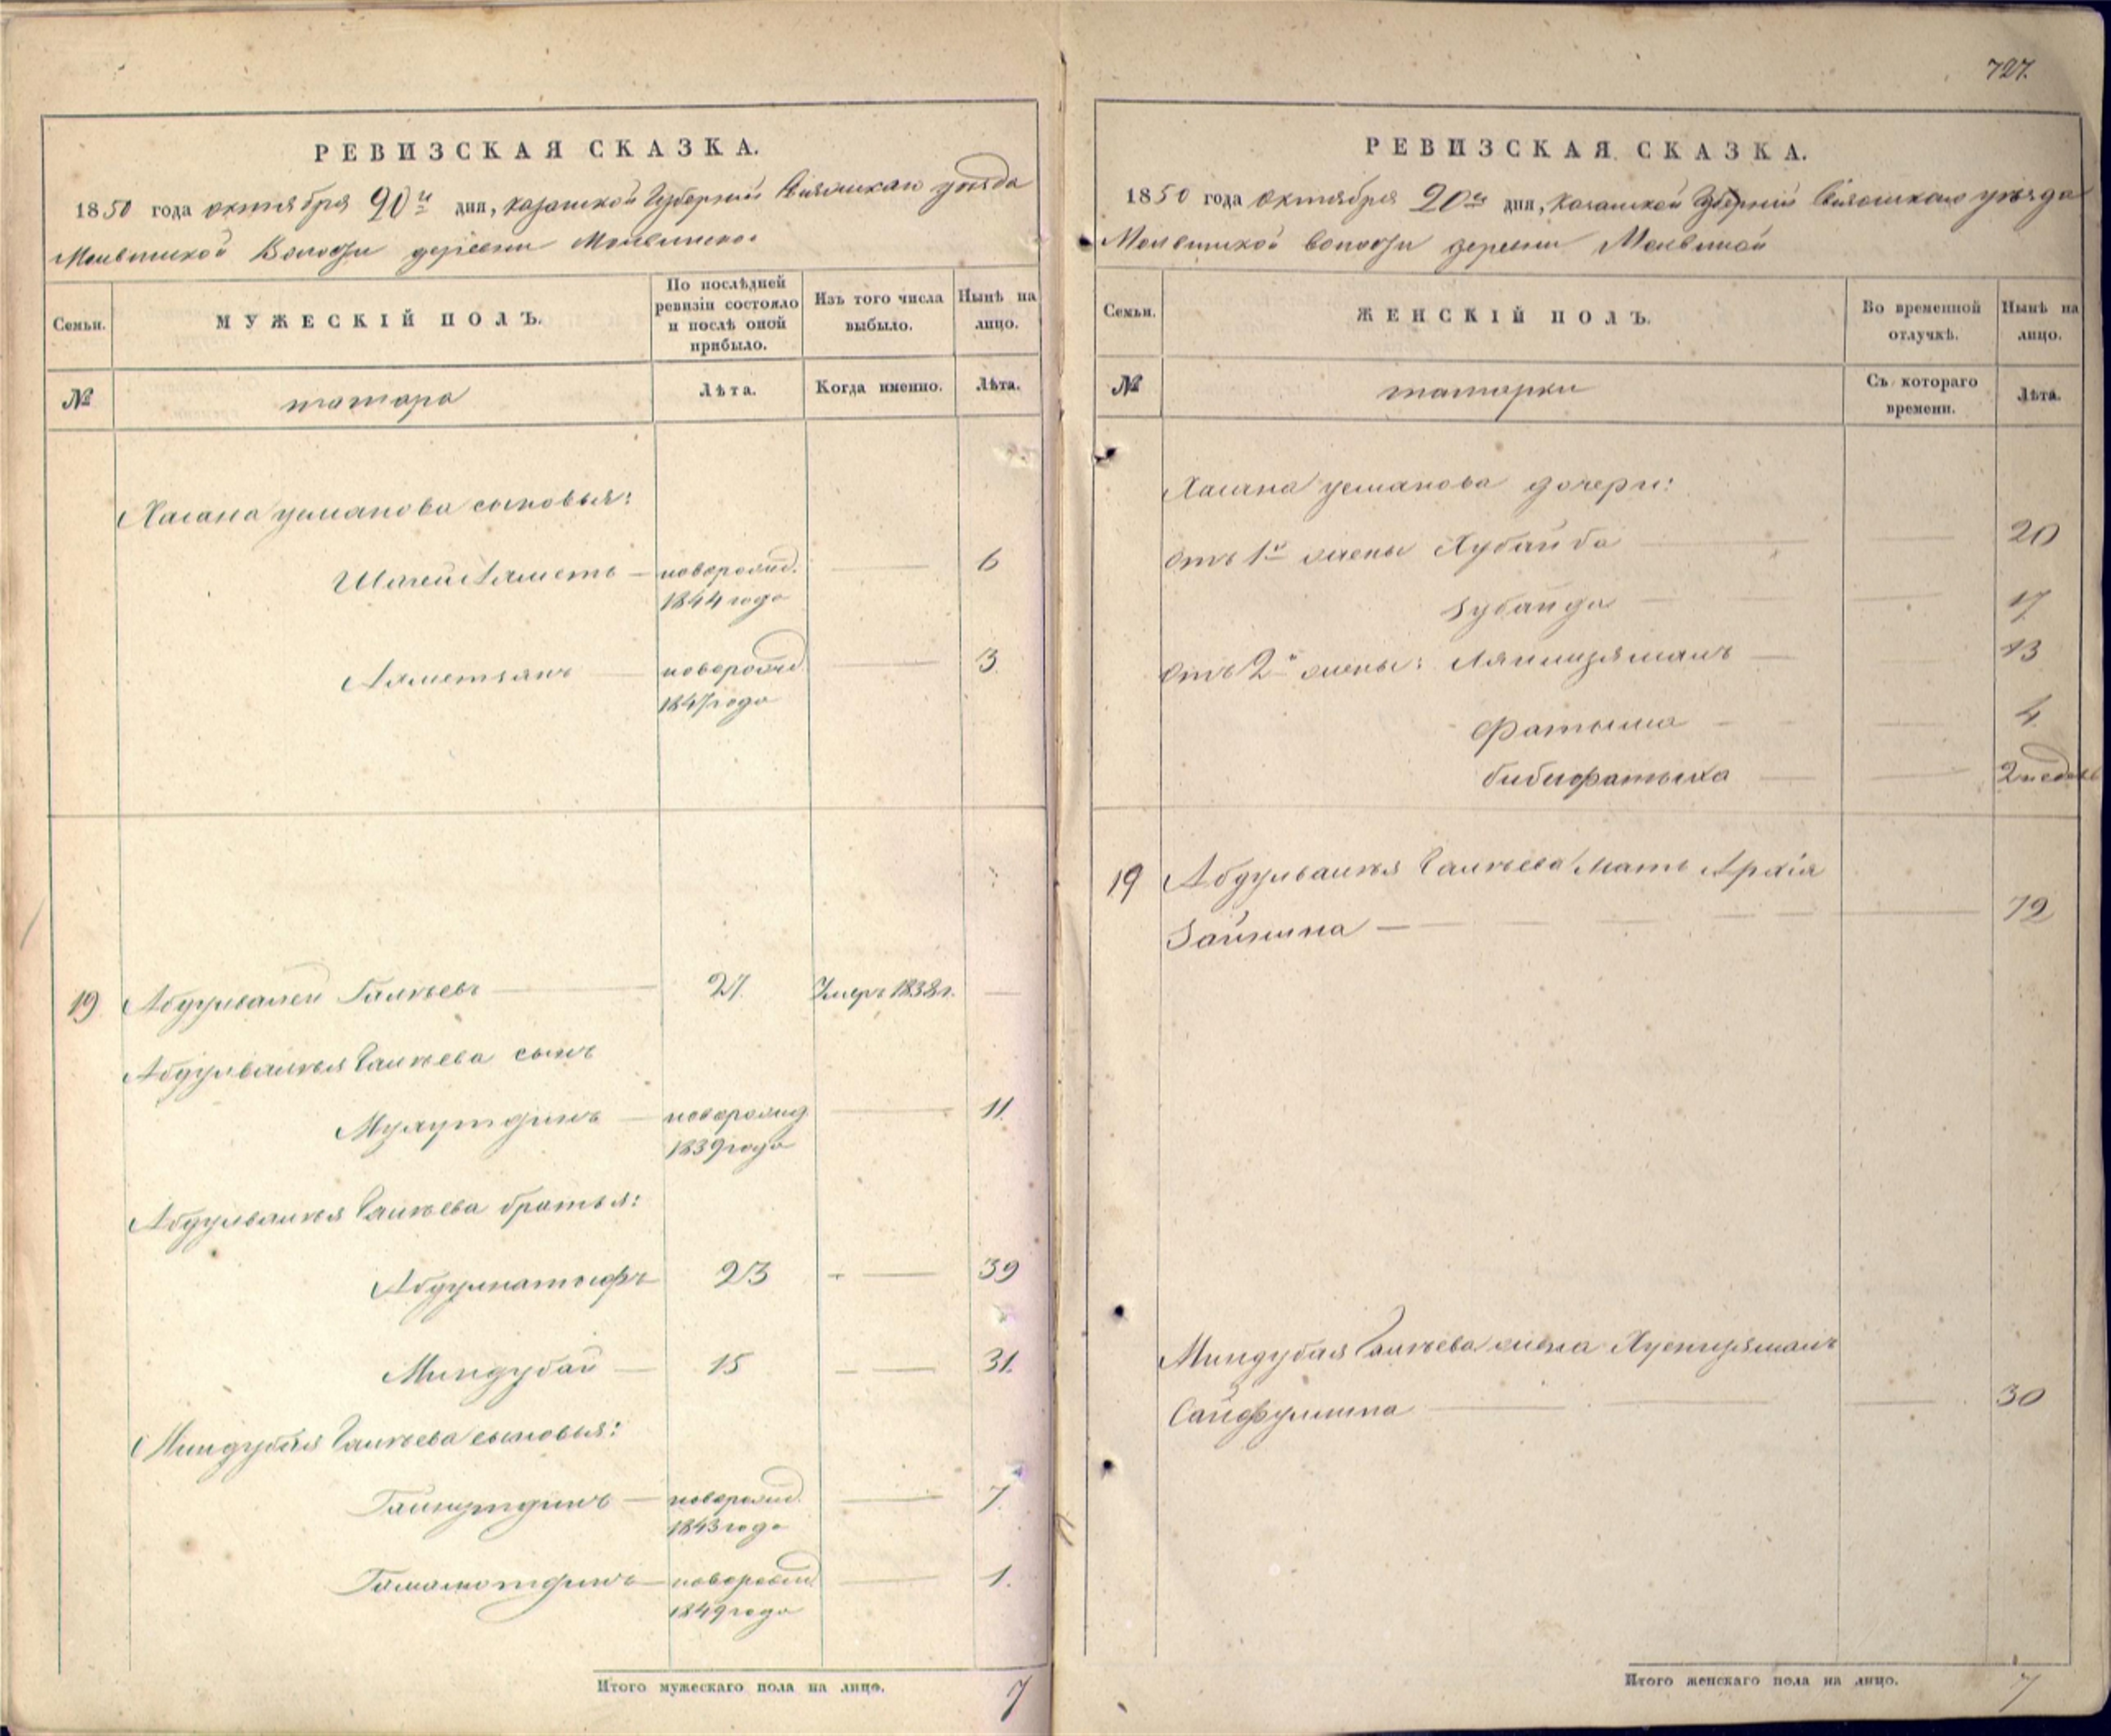 727.
РЕВИЗСКАЯ СКАЗКА.
1850 года октября 20го дня, Казанской Губернии Свияжскаго уезда
Молвинской Волости деревни Молвиной
Семьи.
МУЖЕСКІЙ ПОЛЪ.
По послѣдней ревизіи состояло и послѣ оной прибыло.
Изъ того числа выбыло.
Нынѣ на лицо.
№
татара
Лѣта.
Когда именно.
Лѣта.
Хасана Усманова сыновья:
новорожд. 6
1844 года
новорожд. 3
1847 года
19 Абдулвалей Галѣевъ 27. Умеръ 1838 г.
Абдулвалѣя Галѣева сынъ
новорожд 11.
1839 года
Абдулвалѣя Галѣева братья:
Абдуллатыфъ 23 39
Миндубай 15 31.
Миндубая Галѣева сыновья:
Гайнутдинъ новорожд. 7.
1843 года
Гамалютдинъ новорожд. 1.
1849 года
Итого мужескаго пола на лицо. 7
РЕВИЗСКАЯ СКАЗКА.
1850 года октября 20го дня, Казанской Губерніи Свияжскаго уѣзда
Молвинской волости деревни Молвиной
Семьи.
ЖЕНСКІЙ ПОЛЪ.
Во временной отлучкѣ.
Нынѣ на лицо.
№
татарки
Съ котораго времени.
Лѣта.
Хасана Усманова дочери:
Отъ 1й жены Хубайба 20
Зубайда 17
Отъ 2й жены: 13
Фатыма 4
Бибифатыха 2 недѣль
19 Абдулвалѣя Галѣева мать
Зайнина 72
Миндубая Галѣева жена
Сайфуллина 30
Итого женскаго пола на лицо. 7